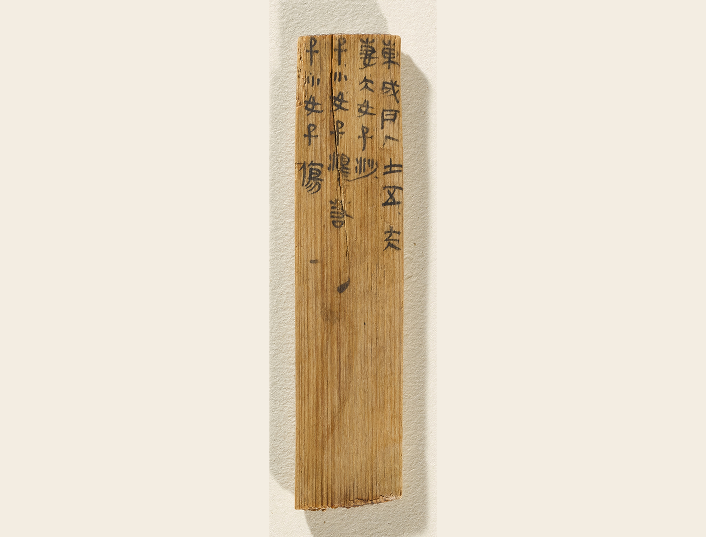 東成戶人士五夫
妻大女子沙
子小女子澤若
子小女子傷